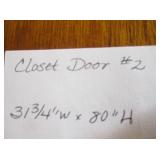 Closet Door #2
31 3/4" W x 80" H